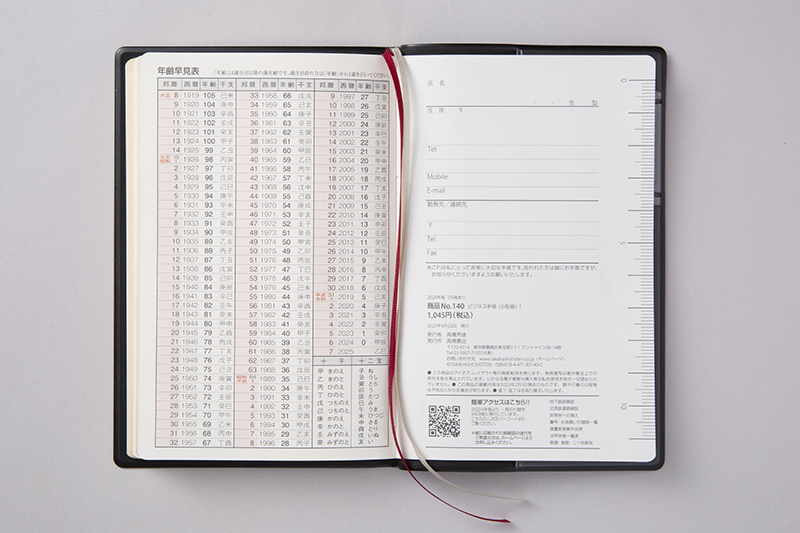 年齢早見表 「年齢」は誕生日以降の満年齢です。誕生日前の方は「年齢」から1歳を引いてください。
邦暦 西暦 年齢 干支
大正 8 1919 105 己未
9 1920 104 庚申
10 1921 103 辛酉
11 1922 102 壬戌
12 1923 101 癸亥
13 1924 100 甲子
14 1925 99 乙丑
大正 15 昭和 1 1926 98 丙寅
2 1927 97 丁卯
3 1928 96 戊辰
4 1929 95 己巳
5 1930 94 庚午
6 1931 93 辛未
7 1932 92 壬申
8 1933 91 癸酉
9 1934 90 甲戌
10 1935 89 乙亥
11 1936 88 丙子
12 1937 87 丁丑
13 1938 86 戊寅
14 1939 85 己卯
15 1940 84 庚辰
16 1941 83 辛巳
17 1942 82 壬午
18 1943 81 癸未
19 1944 80 甲申
20 1945 79 乙酉
21 1946 78 丙戌
22 1947 77 丁亥
23 1948 76 戊子
24 1949 75 己丑
25 1950 74 庚寅
26 1951 73 辛卯
27 1952 72 壬辰
28 1953 71 癸巳
29 1954 70 甲午
30 1955 69 乙未
31 1956 68 丙申
32 1957 67 丁酉
邦暦 西暦 年齢 干支
33 1958 66 戊戌
34 1959 65 己亥
35 1960 64 庚子
36 1961 63 辛丑
37 1962 62 壬寅
38 1963 61 癸卯
39 1964 60 甲辰
40 1965 59 乙巳
41 1966 58 丙午
42 1967 57 丁未
43 1968 56 戊申
44 1969 55 己酉
45 1970 54 庚戌
46 1971 53 辛亥
47 1972 52 壬子
48 1973 51 癸丑
49 1974 50 甲寅
50 1975 49 乙卯
51 1976 48 丙辰
52 1977 47 丁巳
53 1978 46 戊午
54 1979 45 己未
55 1980 44 庚申
56 1981 43 辛酉
57 1982 42 壬戌
58 1983 41 癸亥
59 1984 40 甲子
60 1985 39 乙丑
61 1986 38 丙寅
62 1987 37 丁卯
63 1988 36 戊辰
昭和 64 平成 1 1989 35 己巳
2 1990 34 庚午
3 1991 33 辛未
4 1992 32 壬申
5 1993 31 癸酉
6 1994 30 甲戌
7 1995 29 乙亥
8 1996 28 丙子
邦暦 西暦 年齢 干支
9 1997 27 丁丑
10 1998 26 戊寅
11 1999 25 己卯
12 2000 24 庚辰
13 2001 23 辛巳
14 2002 22 壬午
15 2003 21 癸未
16 2004 20 甲申
17 2005 19 乙酉
18 2006 18 丙戌
19 2007 17 丁亥
20 2008 16 戊子
21 2009 15 己丑
22 2010 14 庚寅
23 2011 13 辛卯
24 2012 12 壬辰
25 2013 11 癸巳
26 2014 10 甲午
27 2015 9 乙未
28 2016 8 丙申
29 2017 7 丁酉
30 2018 6 戊戌
平成 31 令和 1 2019 5 己亥
2 2020 4 庚子
3 2021 3 辛丑
4 2022 2 壬寅
5 2023 1 癸卯
6 2024 0 甲辰
7 2025 乙巳
十干
甲 きのえ
乙 きのと
丙 ひのえ
丁 ひのと
戊 つちのえ
己 つちのと
庚 かのえ
辛 かのと
壬 みずのえ
癸 みずのと
十二支
子 ね
丑 うし
寅 とら
卯 う
辰 たつ
巳 み
午 うま
未 ひつじ
申 さる
酉 とり
戌 いぬ
亥 い
氏名
・ ・ 生 型
住所 〒
Tel
Mobile
E-mail
勤務先／連絡先
〒
Tel
Fax
※これは私にとって非常に大切な手帳です。拾われた方は誠にお手数ですが、
お知らせくださいますようお願いいたします。
2024年版 1月始まり
商品No.140 ビジネス手帳〈小型版〉1
1,045円（税込）
発行者 高橋秀雄
発行所 高橋書店
簡単アクセスはこちら!!
0
5
10